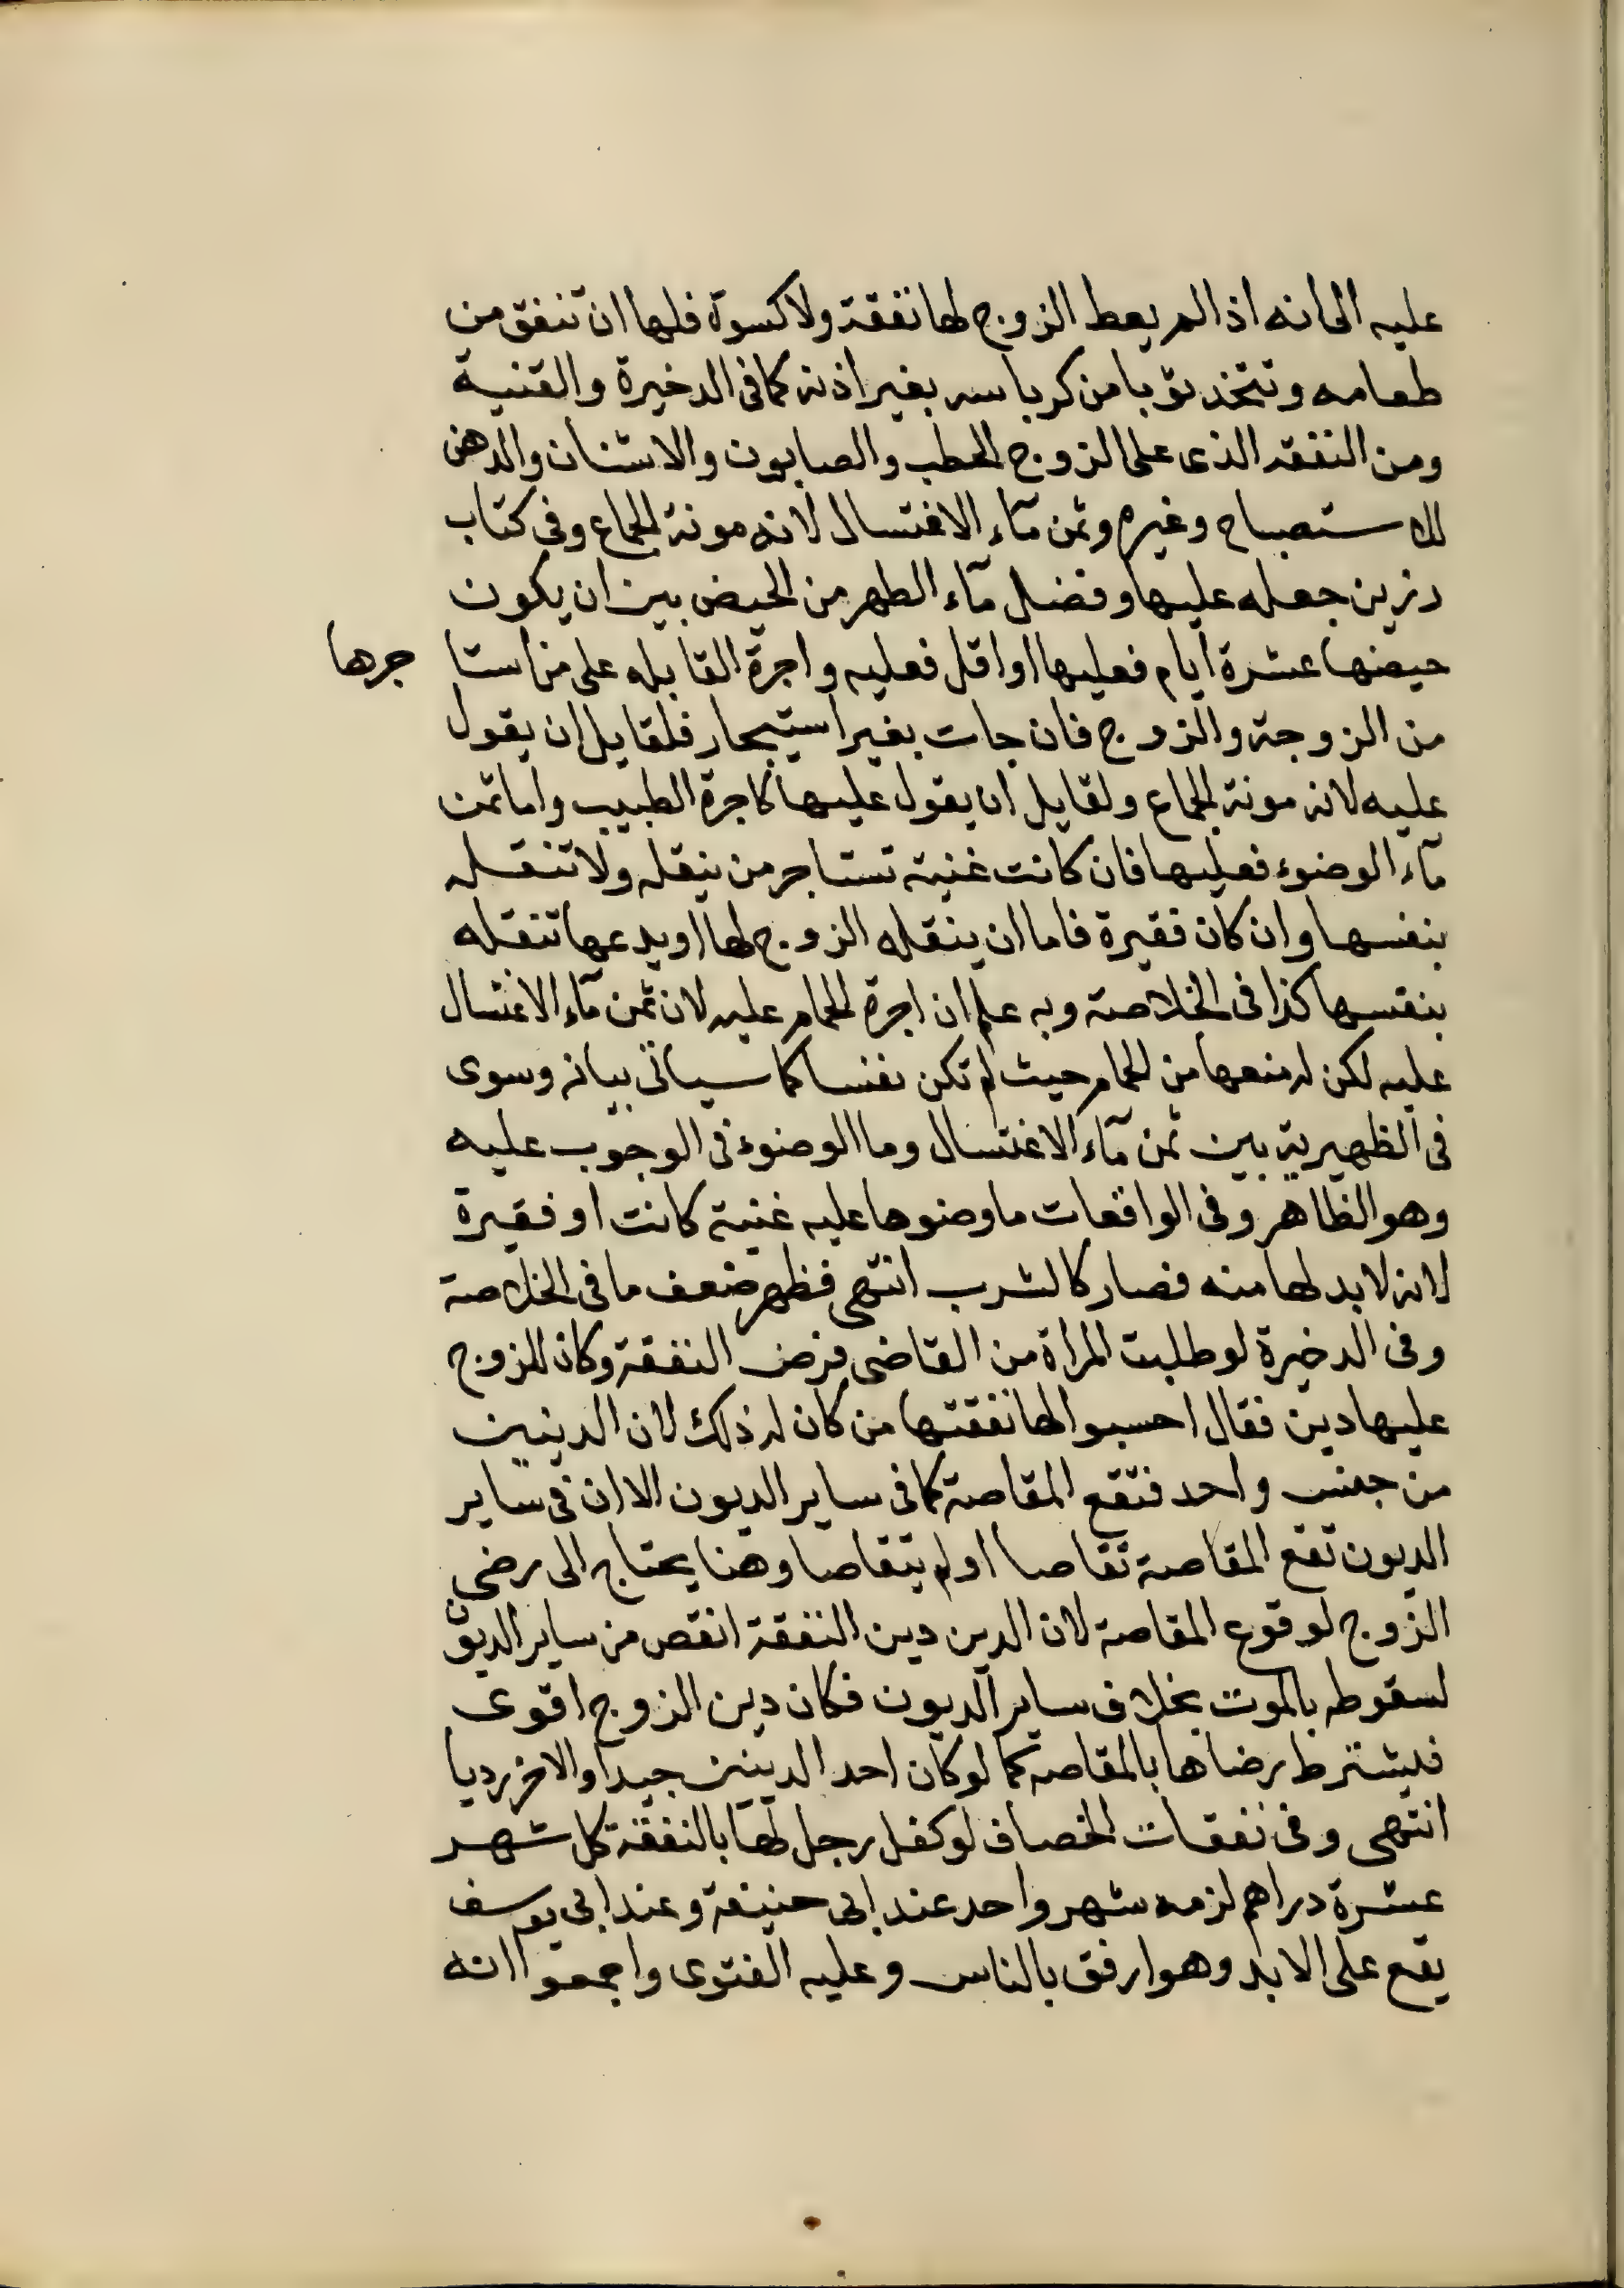 عليه الى انه اذا لم يعط الزوج لها نفقة ولا كسوة فلها ان تنفق من
طعامه وتتخذ ثوبا من كرباسه بغير اذنه كما في الدخيرة والقنية
ومن النفقه الذى على الزوج الحطب والصابون والاشنان والدهن
للاستصباح وغيره وثمن مآء الاغتسال لانه مونة الجماع وفى كتاب
رزين جعله عليها وفصل مآء الطهر من الحيض بين ان يكون
حيضها عشرة ايام فعليها او اقل فعليه واجرة القابله على من استا جرها
من الزوجة والزوج فان جات بغير استيجار فلقايل ان يقول
عليه لانه مونة الجماع ولقايل ان يقول عليها كاجرة الطبيب واما ثمن
مآء الوضوء فعليها فان كانت غنية تستاجر من ينقله ولا تنقله
بنفسها وان كان فقيرة فاما ان ينقله الزوج لها او يدعها تنقله
بنفسها كذا فى الخلاصة وبه علم ان اجرة الحمام عليه لان ثمن مآء الاغتسال
عليه لكن له منعها من الحمام حيث لم تكن نفسا كما سياتى بيانه وسوى
فى الظهيرية بين ثمن مآء الاغتسال وما الوضوء فى الوجوب عليه
وهو الظاهر وفى الواقعات ما وضوها عليه غنية كانت او فقيرة
لانه لا بد لها منه فصار كالشرب انتهى فظهر ضعف ما فى الخلاصة
وفى الدخيرة لو طلبت المراة من القاضى فرض النفقة وكان للزوج
عليها دين فقال احسبوا لها نفقتها من كان له ذلك لان الدينين
من جنس واحد فتقع المقاصة كما فى ساير الديون الا ان فى ساير
الديون تقع المقاصة تقاصا او لم يتقاصا وهنا يحتاج الى رضى
الزوج لوقوع المقاصة لان الدين دين النفقة انقص من ساير الديون
لسقوطه بالموت بخلاف ساير الديون فكان دين الزوج اقوى
فيشترط رضاها بالمقاصه كما لو كان احد الدينين جيدا والاخر رديا
انتهى وفى نفقات الخصاف لو كفل رجل لها بالنفقة كل شهر
عشرة دراهم لزمه شهر واحد عند ابى حنيفة وعند ابى يوسف
يقع على الابد وهو ارفق بالناس وعليه الفتوى واجمعوا انه